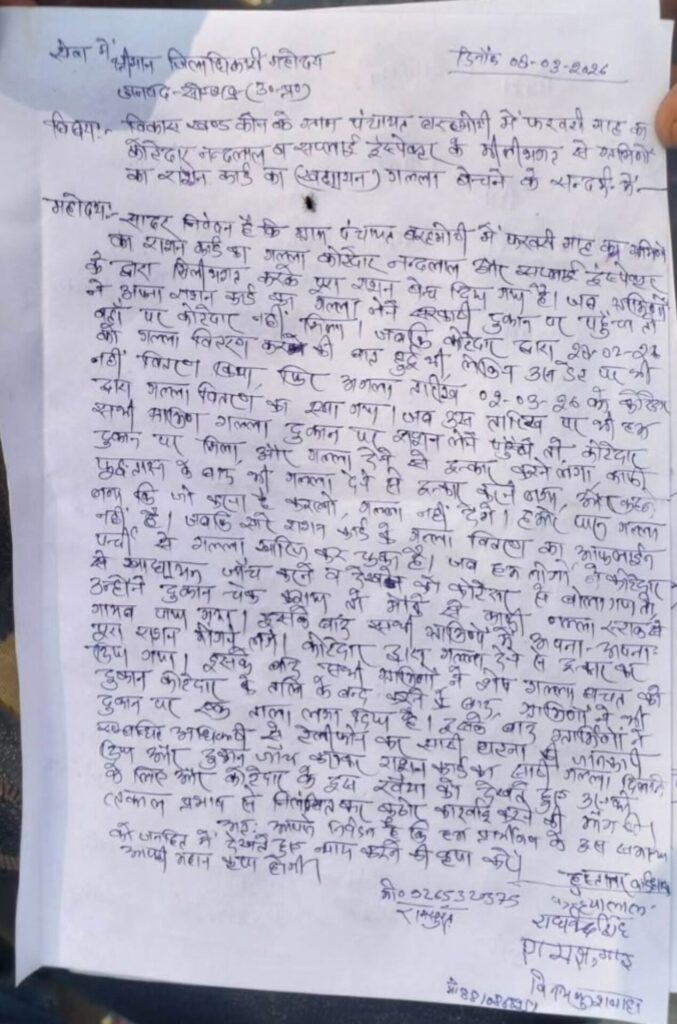 सेवा में,
श्रीमान जिलाधिकारी महोदय
दिनांक 05-03-2026
जनपद-सोनभद्र-(उ०प्र०)
विषय:- विकास खण्ड कोन के ग्राम पंचायत बरहमोरी में फरवरी माह का
कोटेदार नन्दलाल व सप्लाई इंस्पेक्टर के मीलीभगत से ग्रामिणों
का राशन कार्ड का (खाद्यान) गल्ला बेचने के सन्दर्भ में।
महोदय:- सादर निवेदन है कि ग्राम पंचायत बरहमोरी में फरवरी माह का ग्रामिणों
का राशन कार्ड का गल्ला कोटेदार नन्दलाल और सप्लाई इंस्पेक्टर
के द्वारा मिलीभगत करके पुरा राशन बेच दिया गया है। जब ग्रामिणों
ने अपना राशन कार्ड का गल्ला लेने सरकारी दुकान पर पहुँचा तो
वहाँ पर कोटेदार नहीं मिला। जबकि कोटेदार द्वारा 28-02-26
को गल्ला वितरण करने की बात हुई थी, लेकिन उस डेट पर भी
नहीं वितरण किया, फिर अगला तारीख 02-03-26 को कोटेदार
द्वारा गल्ला वितरण का रखा गया। जब उस तारिख पर भी हम
सभी ग्रामिण गल्ला दुकान पर राशन लेने पहुँचे तो, कोटेदार
दुकान पर मिला, और गल्ला देने से इन्कार करने लगा काफी
पुछताछ के बाद भी गल्ला देने से इन्कार करने लगा, और कहने
लगा कि जो करना है करलो, गल्ला नहीं देंगे। हमारे पास गल्ला
नहीं है। जबकि सारे राशन कार्ड के गल्ला वितरण का
पर्ची से गल्ला खारिज कर चुका है। जब हम लोगों ने कोटेदार
से खाद्यान्न जाँच करने व देखने को कोटेदार से बोला गया तो
उन्होंने दुकान चेक कराया तो मौके से काफी गल्ला स्टाक से
गायब पाया गया। इसके बाद सभी ग्रामिणों ने अपना-अपना
पुरा राशन माँगने लगे। कोटेदार द्वारा गल्ला देने से इन्कार कर
दिया गया। इसके बाद सभी ग्रामिणों ने शेष गल्ला बचत की
दुकान कोटेदार के ताले के बन्द करने के बाद, ग्रामिणों ने भी
दुकान पर एक ताला लगा दिया है। इसके बाद ग्रामिणों ने
सम्बन्धित अधिकारी से टेलीफोन कर सारी घटना से जानकारी
दिया और दुकान जाँच कराकर राशन कार्ड का सारी गल्ला दिलाने
के लिए और कोटेदार के इस रवैया को देखते हुए उसको
तत्काल प्रभाव से निलंबित कर कठोर कारवाई करने की माँग की।
अतः आपसे निवेदन है कि हम प्रार्थीगण के उस समस्या
को जनहित में देखते हुए न्याय करने की कृपा करें।
आपकी महान कृपा होगी।
कन्हैयालाल
राघवेंद्र सिंह